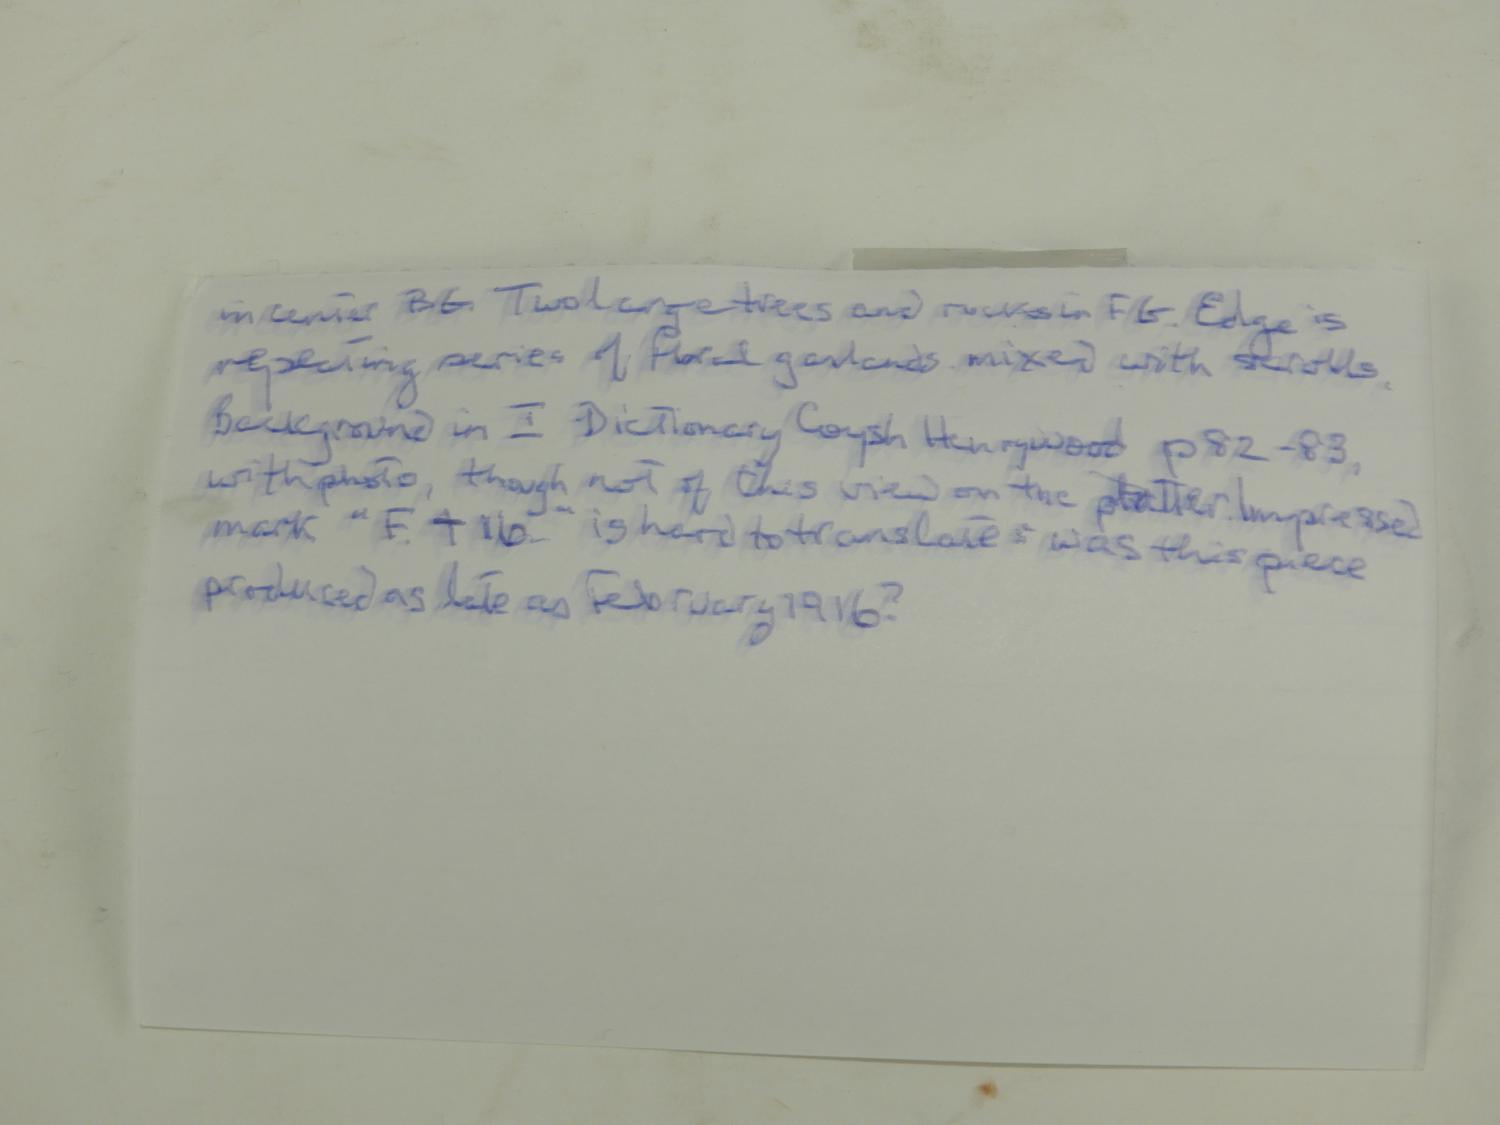 in center BG. Two large trees and rocks in FG. Edge is
repeating series of floral garlands mixed with scrolls.
Background in I Dictionary Coysh Henrywood p 82-83,
with photo, though not of this view on the platter. Impressed
mark "F. + 16." is hard to translate: was this piece
produced as late as February 1916?